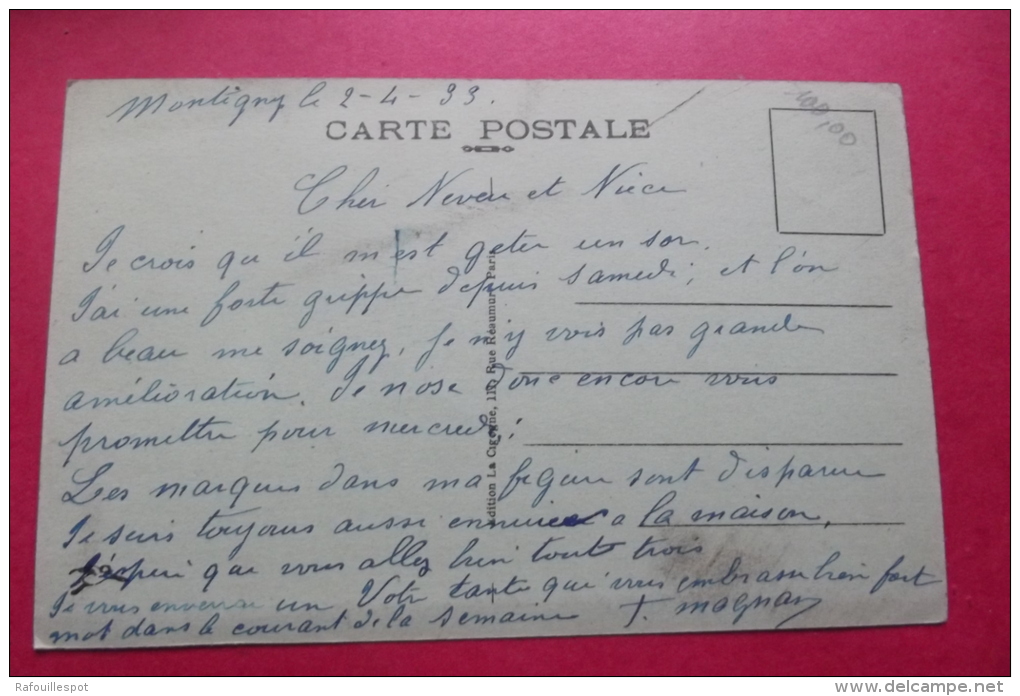 Montigny le 2-4-33.
100,00
CARTE POSTALE
Cher Neveu et Nièce
Je crois qu'il m'est geter un sor.
J'ai une forte grippe depuis samedi, et l'on
a beau me soigner, je n'y vois pas grande
amélioration. Je nose donc encore vous
promettre pour mercredi.
Les marques dans ma figure sont disparue
Je suis toujours aussi ennuiee a la maison.
J'espere que vous allez bien touts trois
Je vous enverrai un Votre tante qui vous embrasse bien fort
mot dans le courant de la semaine T. Magnan
Edition La Cigogne, 117 Rue Réaumur, Paris
Rafouillespot
www.delcampe.net